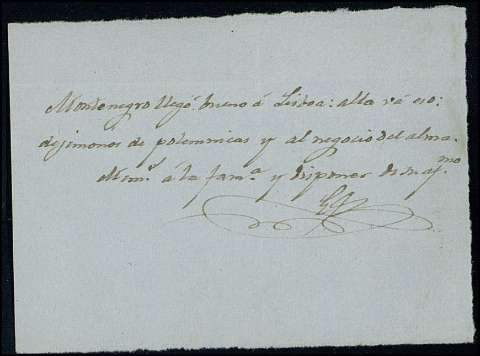 Montenegro llegó bueno á Lisboa: alla vá eso:
dejémonos de polemicas y al negocio del alma.
Mem.s á la fam.a y disponer de su af.mo